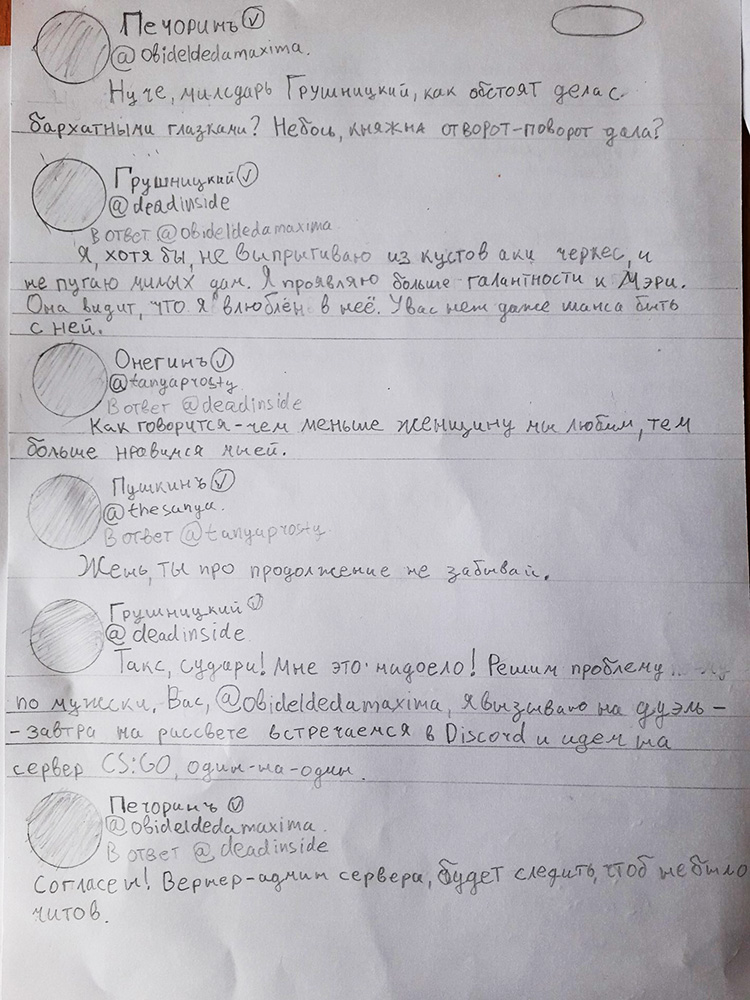 Печоринъ
@obideldedamaxima.
Ну че, милсдарь Грушницкий, как обстоят дела с
бархатными глазками? Небось, княжна отворот-поворот дала?
Грушницкий
@deadinside
В ответ @obideldedamaxima
Я, хотя бы, не выпрыгиваю из кустов аки черкес, и
не пугаю милых дам. Я проявляю больше галантности к Мэри.
Она видит, что я влюблён в неё. У вас нет даже шанса быть
с ней.
Онегинъ
@tanyaprosty
В ответ @deadinside
Как говорится - чем меньше женщину мы любим, тем
больше нравимся мы ей.
Пушкинъ
@thesanya.
В ответ @tanyaprosty
Жень, ты про продолжение не забывай.
Грушницкий
@deadinside
Такс, судари! Мне это надоело! Решим проблему
по мужски. Вас, @obideldedamaxima, я вызываю на дуэль -
- завтра на рассвете встречаемся в Discord и идем на
сервер CS:GO, один-на-один.
Печоринъ
@obideldedamaxima.
В ответ @deadinside
Согласен! Вернер-админ сервера, будет следить, чтоб не было
читов.